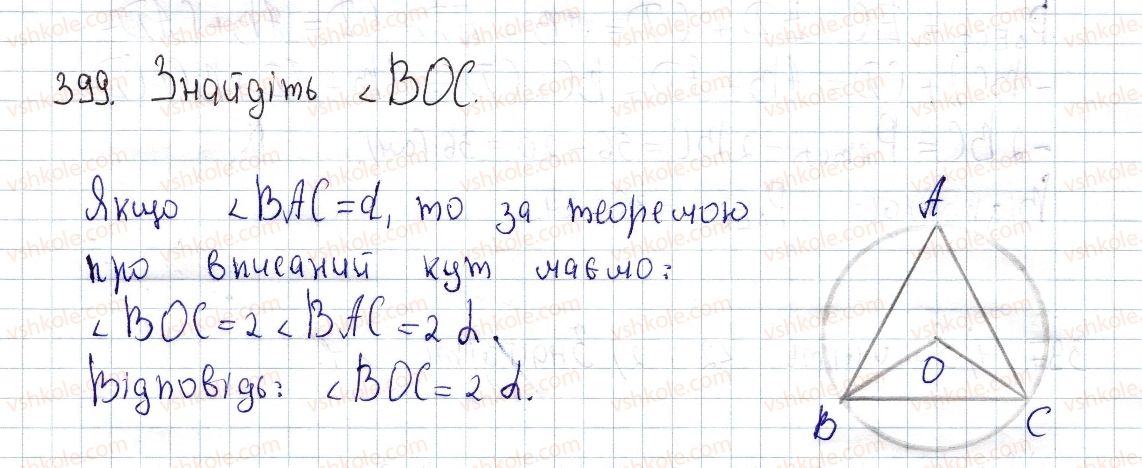 399. Знайдіть ∠BOC.
Якщо ∠BAC = α, то за теоремою
про вписаний кут маємо:
∠BOC = 2∠BAC = 2α.
Відповідь: ∠BOC = 2α.
A
O
B
C
vshkole.com